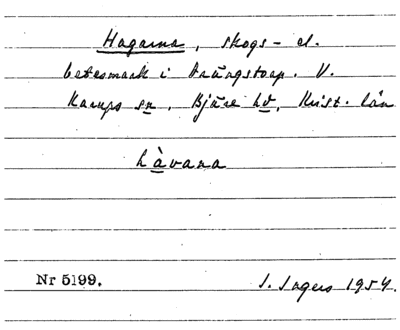 Hagarna, skogs- el.
betesmark i Trängstorp. V.
Karups sn. Bjäre hd, Krist. län
hàvana
Nr 5199. I. Ingers 1954.